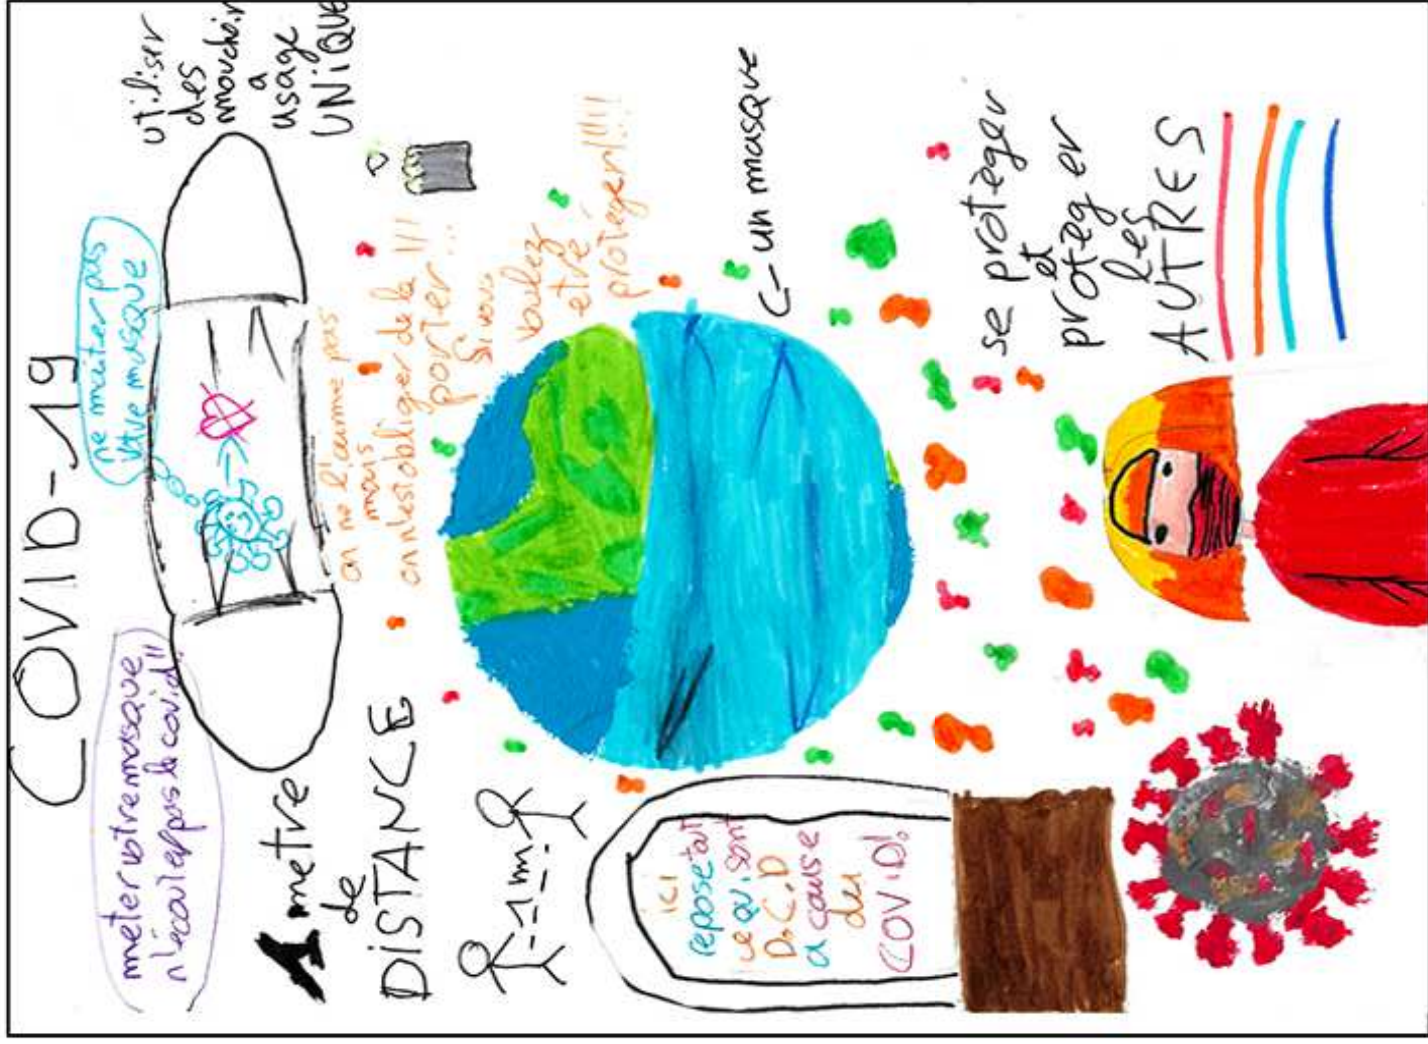 COVID-19
meter votre masque
n'écoutez pas le covid!!
ne meuter pas
votre masque
utiliser
des
mouchoir
a
usage
UNiQUE
1 metre
de
DiSTANCE
-1m-
on ne l'aime pas
mais
on n'est obliger de le !!!
porter...
Si vous
voulez
etre
protéger!!!!
un masque
ici
repose tout
ce qui sont
D.C.D
a cause
du
COViD!
se protèger
et
protèg er
les
AUTRES